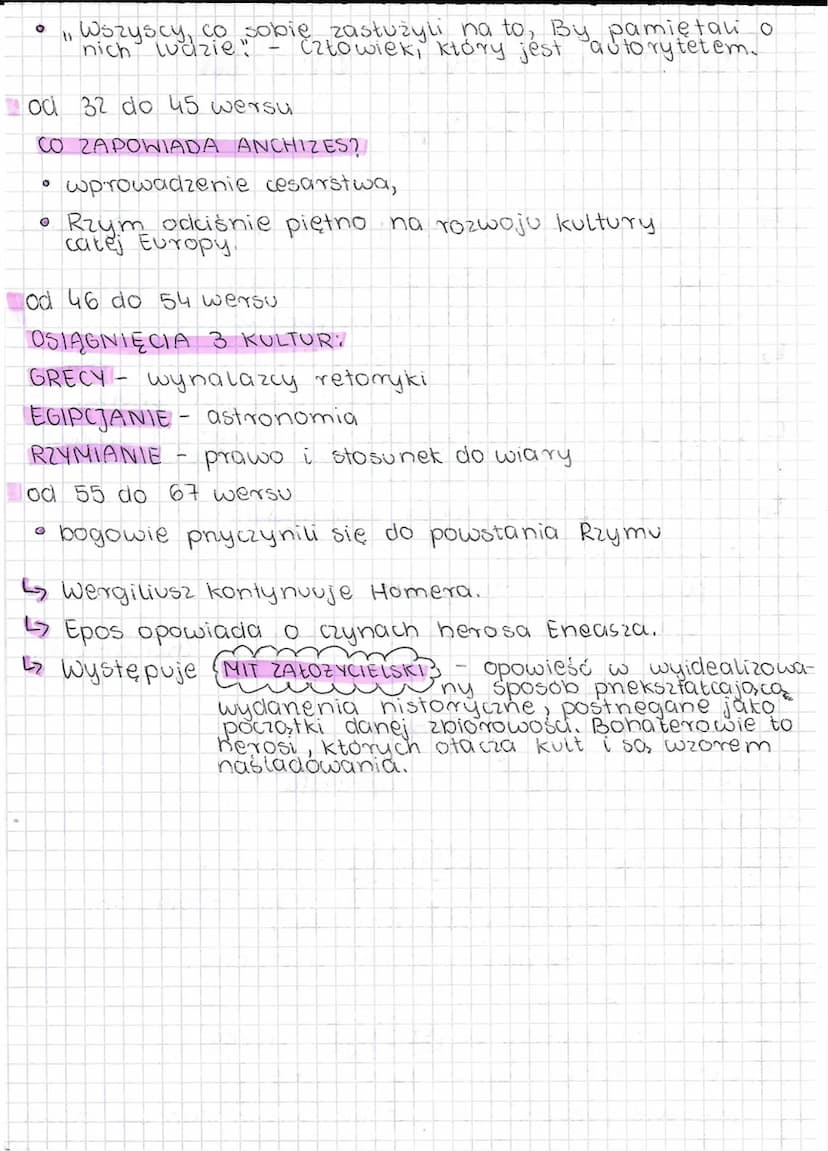 • „Wszyscy, co sobie zasłużyli na to, By pamiętali o
nich ludzie." - Człowiek, który jest autorytetem.
od 32 do 45 wersu
CO ZAPOWIADA ANCHIZES?
• wprowadzenie cesarstwa,
• Rzym odciśnie piętno na rozwoju kultury
całej Europy.
od 46 do 54 wersu
OSIĄGNIĘCIA 3 KULTUR:
GRECY - wynalazcy retoryki
EGIPCJANIE - astronomia
RZYMIANIE - prawo i stosunek do wiary
od 55 do 67 wersu
• bogowie przyczynili się do powstania Rzymu
↳ Wergiliusz kontynuuje Homera.
↳ Epos opowiada o czynach herosa Eneasza.
↳ Występuje MIT ZAŁOŻYCIELSKI - opowieść w wyidealizowa-
ny sposób przekształcająca
wydarzenia historyczne, postrzegane jako
początki danej zbiorowości. Bohaterowie to
herosi, których otacza kult i są wzorem
naśladowania.